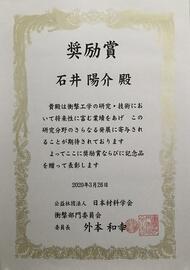 奨励賞
石井 陽介 殿
貴殿は衝撃工学の研究・技術にお
いて将来性に富む業績をあげ この
研究分野のさらなる発展に寄与され
ることが期待されております
よってここに奨励賞ならびに記念品
を贈って表彰します
2020年3月26日
公益社団法人 日本材料学会
衝撃部門委員会
委員長 外本 和幸